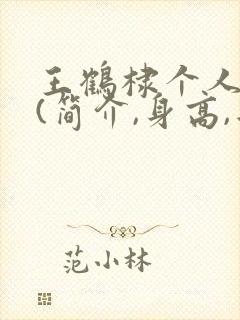 王鹤棣个人
(简介,身高,
范小林